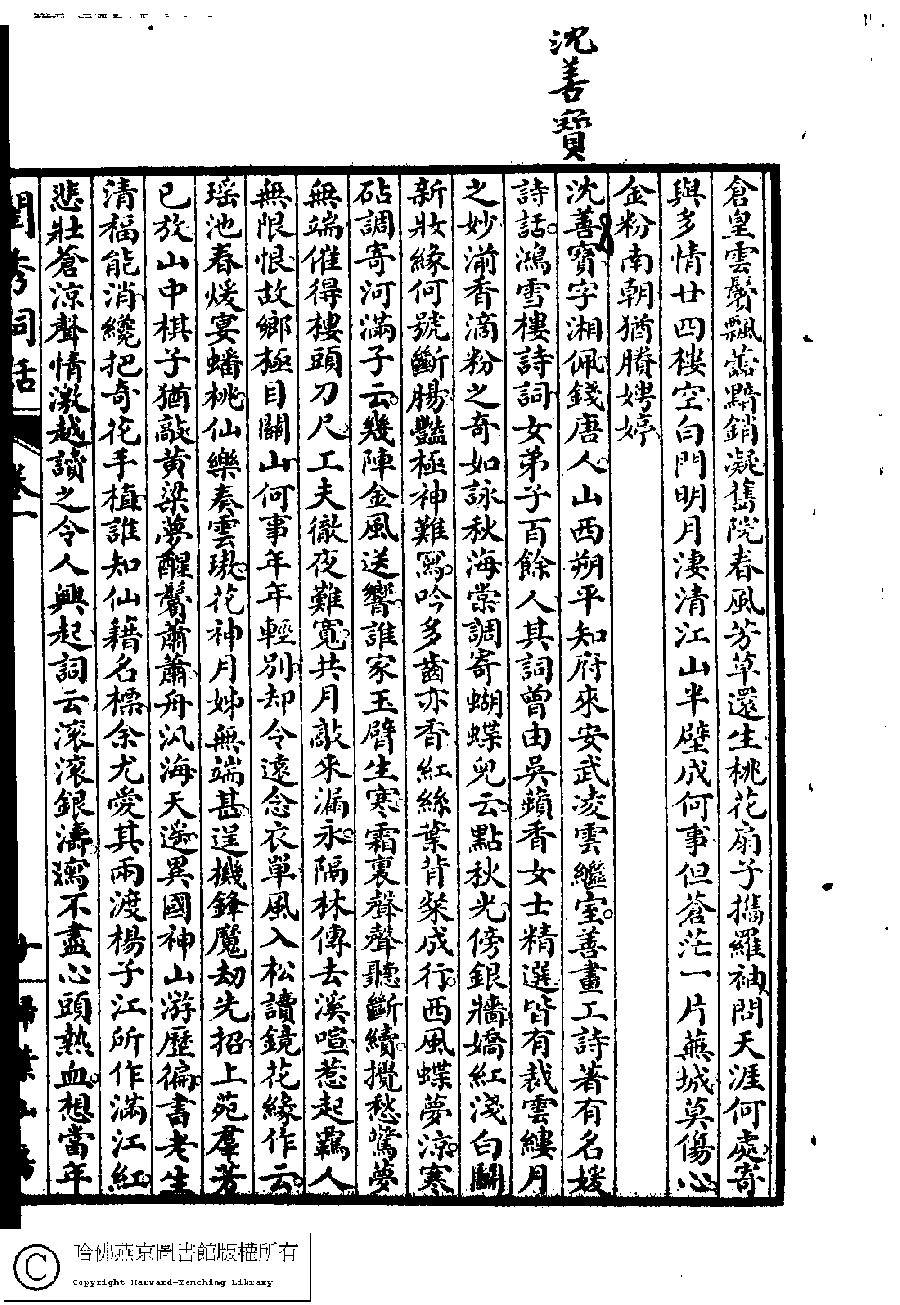 沈善寶
倉皇雲鬢飄蕭黯銷凝舊院春風芳草還生桃花扇子攜羅袖問天涯何處寄
與多情廿四樓空白門明月淒清江山半壁成何事但蒼茫一片蕪城莫傷心
金粉南朝猶賸娉婷
沈善寶字湘佩錢唐人山西朔平知府來安武凌雲繼室善畫工詩著有名媛
詩話鴻雪樓詩詞女弟子百餘人其詞曾由吳蘋香女士精選皆有裁雲縷月
之妙湔香滴粉之奇如詠秋海棠調寄蝴蝶兒云點秋光傍銀牆嬌紅淺白鬭
新妝緣何號斷腸豔極神難寫吟多齒亦香紅絲葉背粲成行西風蝶夢涼寒
砧調寄河滿子云幾陣金風送響誰家玉臂生寒霜裏聲聲聽斷續攪愁驚夢
無端催得樓頭刀尺工夫徹夜難寬共月敲來漏永隔林傳去溪喧惹起羈人
無限恨故鄉極目關山何事年年輕別却令遠念衣單風入松讀鏡花緣作云
瑤池春煖宴蟠桃仙樂奏雲璈花神月姊無端甚逞機鋒魔劫先招上苑羣芳
已放山中棋子猶敲黃粱夢醒鬢蕭蕭舟汎海天遙異國神山游歷徧書老生
清福能消纔把奇花手植誰知仙籍名標余尤愛其兩渡楊子江所作滿江紅
悲壯蒼涼聲情激越讀之令人興起詞云滾滾銀濤瀉不盡心頭熱血想當年
閨秀詞話 卷一
哈佛燕京圖書館版權所有
Copyright Harvard-Yenching Library